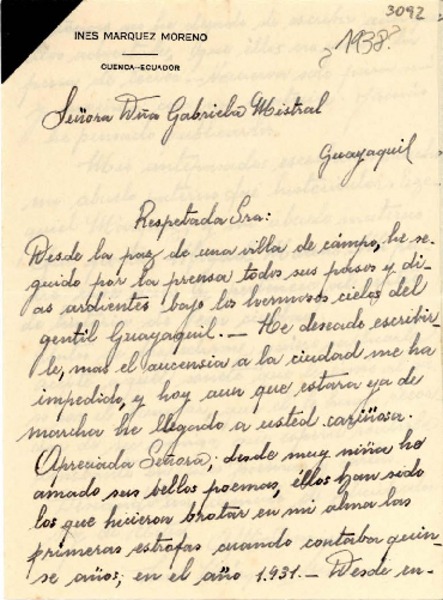 3092
INES MARQUEZ MORENO
CUENCA--ECUADOR
¿1938?
Señora Dña Gabriela Mistral
Guayaquil
Respetada Sra:
Desde la paz de una villa de campo, he se-
guido por la prensa todos sus pasos y di-
as ardientes bajo los hermosos cielos del
gentil Guayaquil. — He deseado escribir
le, mas el aucensia a la ciudad me ha
impedido, y hoy aun que estara ya de
marcha he llegado a usted cariñosa.
Apreciada Señora; desde muy niña he
amado sus bellos poemas, éllos han sido
los que hicieron brotar en mi alma las
primeras estrofas cuando contaba quin-
se años; en el año 1.931. — Desde en-